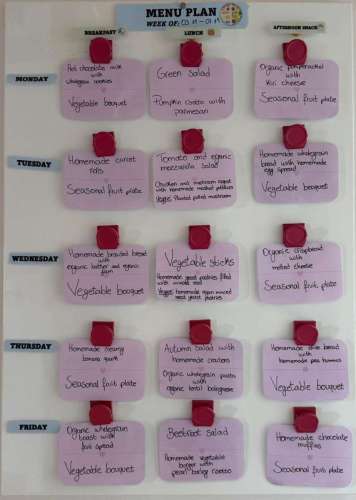 MENU PLAN
WEEK OF: 03.11-07.11
BREAKFAST
LUNCH
AFTERNOON SNACK
MONDAY
Hot chocolate milk
with
wholegrain cookies
Vegetable bouquet
Green salad
Pumpkin risotto with
parmesan
Organic pumpernickel
with
Kiri cheese
Seasonal fruit plate
TUESDAY
Homemade carrot
Seasonal fruit plate
Tomato and organic
mozzarella salad
Chicken and mushroom ragout
with homemade mashed potatoes
Veggie: Plant mushroom
Homemade wholegrain
bread with homemade
egg spread
Vegetable bouquet
WEDNESDAY
Homemade braided bread
with
organic butter and organic
Vegetable bouquet
Vegetable sticks
Homemade yeast pastries filled
with minced meat
Veggie: homemade vegan minced
meat yeast pastries
Organic crispbread
with
melted cheese
Seasonal fruit plate
THURSDAY
Homemade creamy
banana
Seasonal fruit plate
Autumn salad with
homemade croutons
Organic wholegrain pasta
with
organic lentil bolognese
Homemade bread
with
homemade pea hummus
Vegetable bouquet
FRIDAY
Organic wholegrain
toast with
fruit spread
Vegetable bouquet
Beetroot salad
Homemade vegetable
burger with
pearl barley risotto
Homemade chocolate
muffins
Seasonal fruit plate